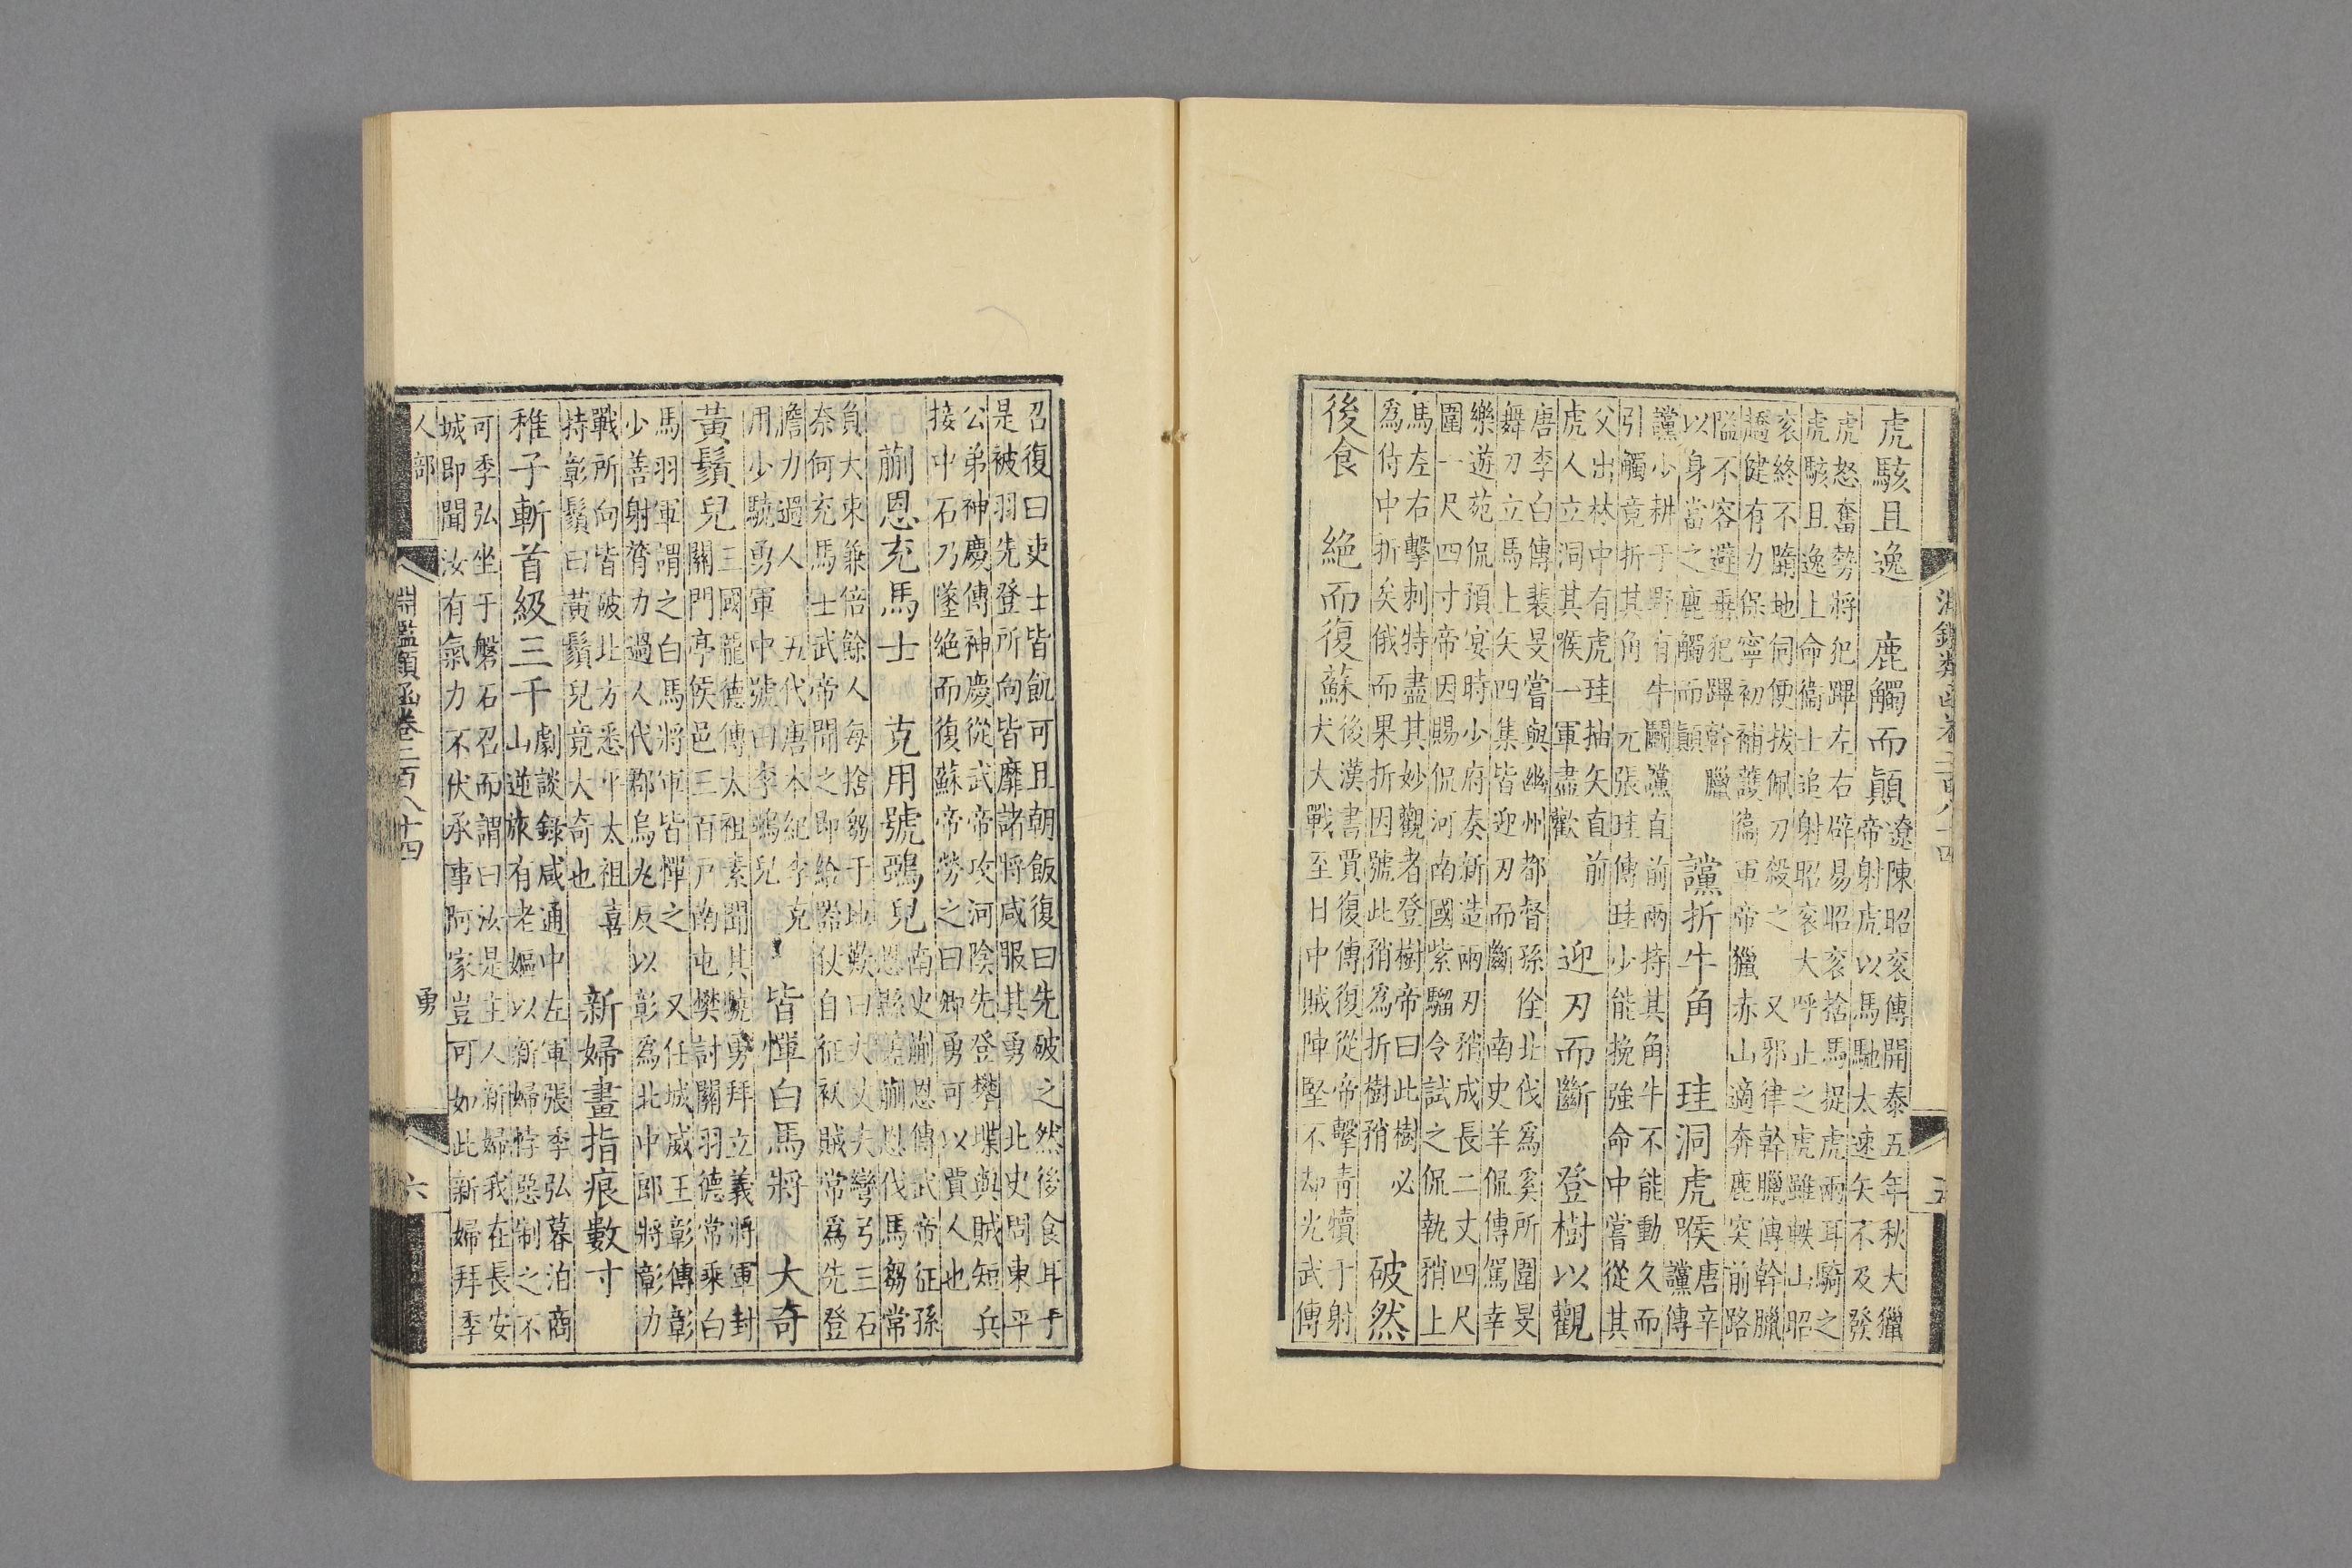 淵鑑類函卷二百八十四　五
虎駭且逸　鹿觸而顚
遼陳昭衮傳開泰五年秋大獵
帝射虎以馬馳太速矢不及發
虎怒奮勢將犯蹕左右辟易昭衮捨馬捉虎兩耳騎之
虎駭且逸上命衞士追射昭衮大呼止之虎雖軼山昭
衮終不墮地伺便拔佩刀殺之　又邪律幹臘傳幹臘
趫健有力保寧初補護衞軍帝獵赤山適奔鹿突前路
隘不容避垂犯蹕幹臘
以身當之鹿觸而顚
讜折牛角　珪洞虎喉
唐辛
讜傳
讜少耕于野有牛鬭讜直前兩持其角牛不能動久而
引觸竟折其角　元張珪傳珪少能挽強命中嘗從其
父出林中有虎珪抽矢直前
虎人立洞其喉一軍盡歡
迎刃而斷　登樹以觀
唐李白傳裴旻嘗與幽州都督孫佺北伐爲奚所圍旻
舞刀立馬上矢四集皆迎刃而斷　南史羊侃傳駕幸
樂遊苑侃預宴時少府奏新造兩刃矟成長二丈四尺
圍一尺四寸帝因賜侃河南國紫騮令試之侃執矟上
馬左右擊刺特盡其妙觀者登樹帝曰此樹必
爲侍中折矣俄而果折因號此矟爲折樹矟
破然
後食　絶而復蘇
後漢書賈復傳復從帝擊青犢于射
犬大戰至日中賊陣堅不却光武傳
召復曰吏士皆飢可且朝飯復曰先破之然後食耳于
是被羽先登所向皆靡諸將咸服其勇　北史周東平
公弟神慶傳神慶從武帝攻河陰先登攀堞與賊短兵
接中石乃墜絶而復蘇帝勞之曰卿勇可以賈人也
蒯恩充馬士　克用號鵶兒
南史蒯恩傳武帝征孫
恩縣差蒯恩伐馬芻常
負大束兼倍餘人每捨芻于地歎曰大丈夫彎弓三石
奈何充馬士武帝聞之即給器仗自征袄賊常爲先登
膽力過人　五代唐本紀李克
用少驍勇軍中號曰李鵶兒
皆憚白馬將　大奇
黃鬚兒
三國龐德傳太祖素聞其驍勇拜立義將軍封
關門亭侯邑三百戸南屯樊討關羽德常乘白
馬羽軍謂之白馬將軍皆憚之　又任城威王彰傳彰
少善射膂力過人代郡烏丸反以彰爲北中郎將彰力
戰所向皆破北方悉平太祖喜
持彰鬚曰黃鬚兒竟大奇也
新婦畫指痕數寸
稚子斬首級三千
劇談錄咸通中左軍張季弘暮泊商
山逆旅有老嫗以新婦悖惡制之不
可季弘坐于磐石召而謂曰汝是主人新婦我在長安
城即聞汝有氣力不伏承事阿家豈可如此新婦拜季
人部　勇
淵鑑類函卷二百八十四　六